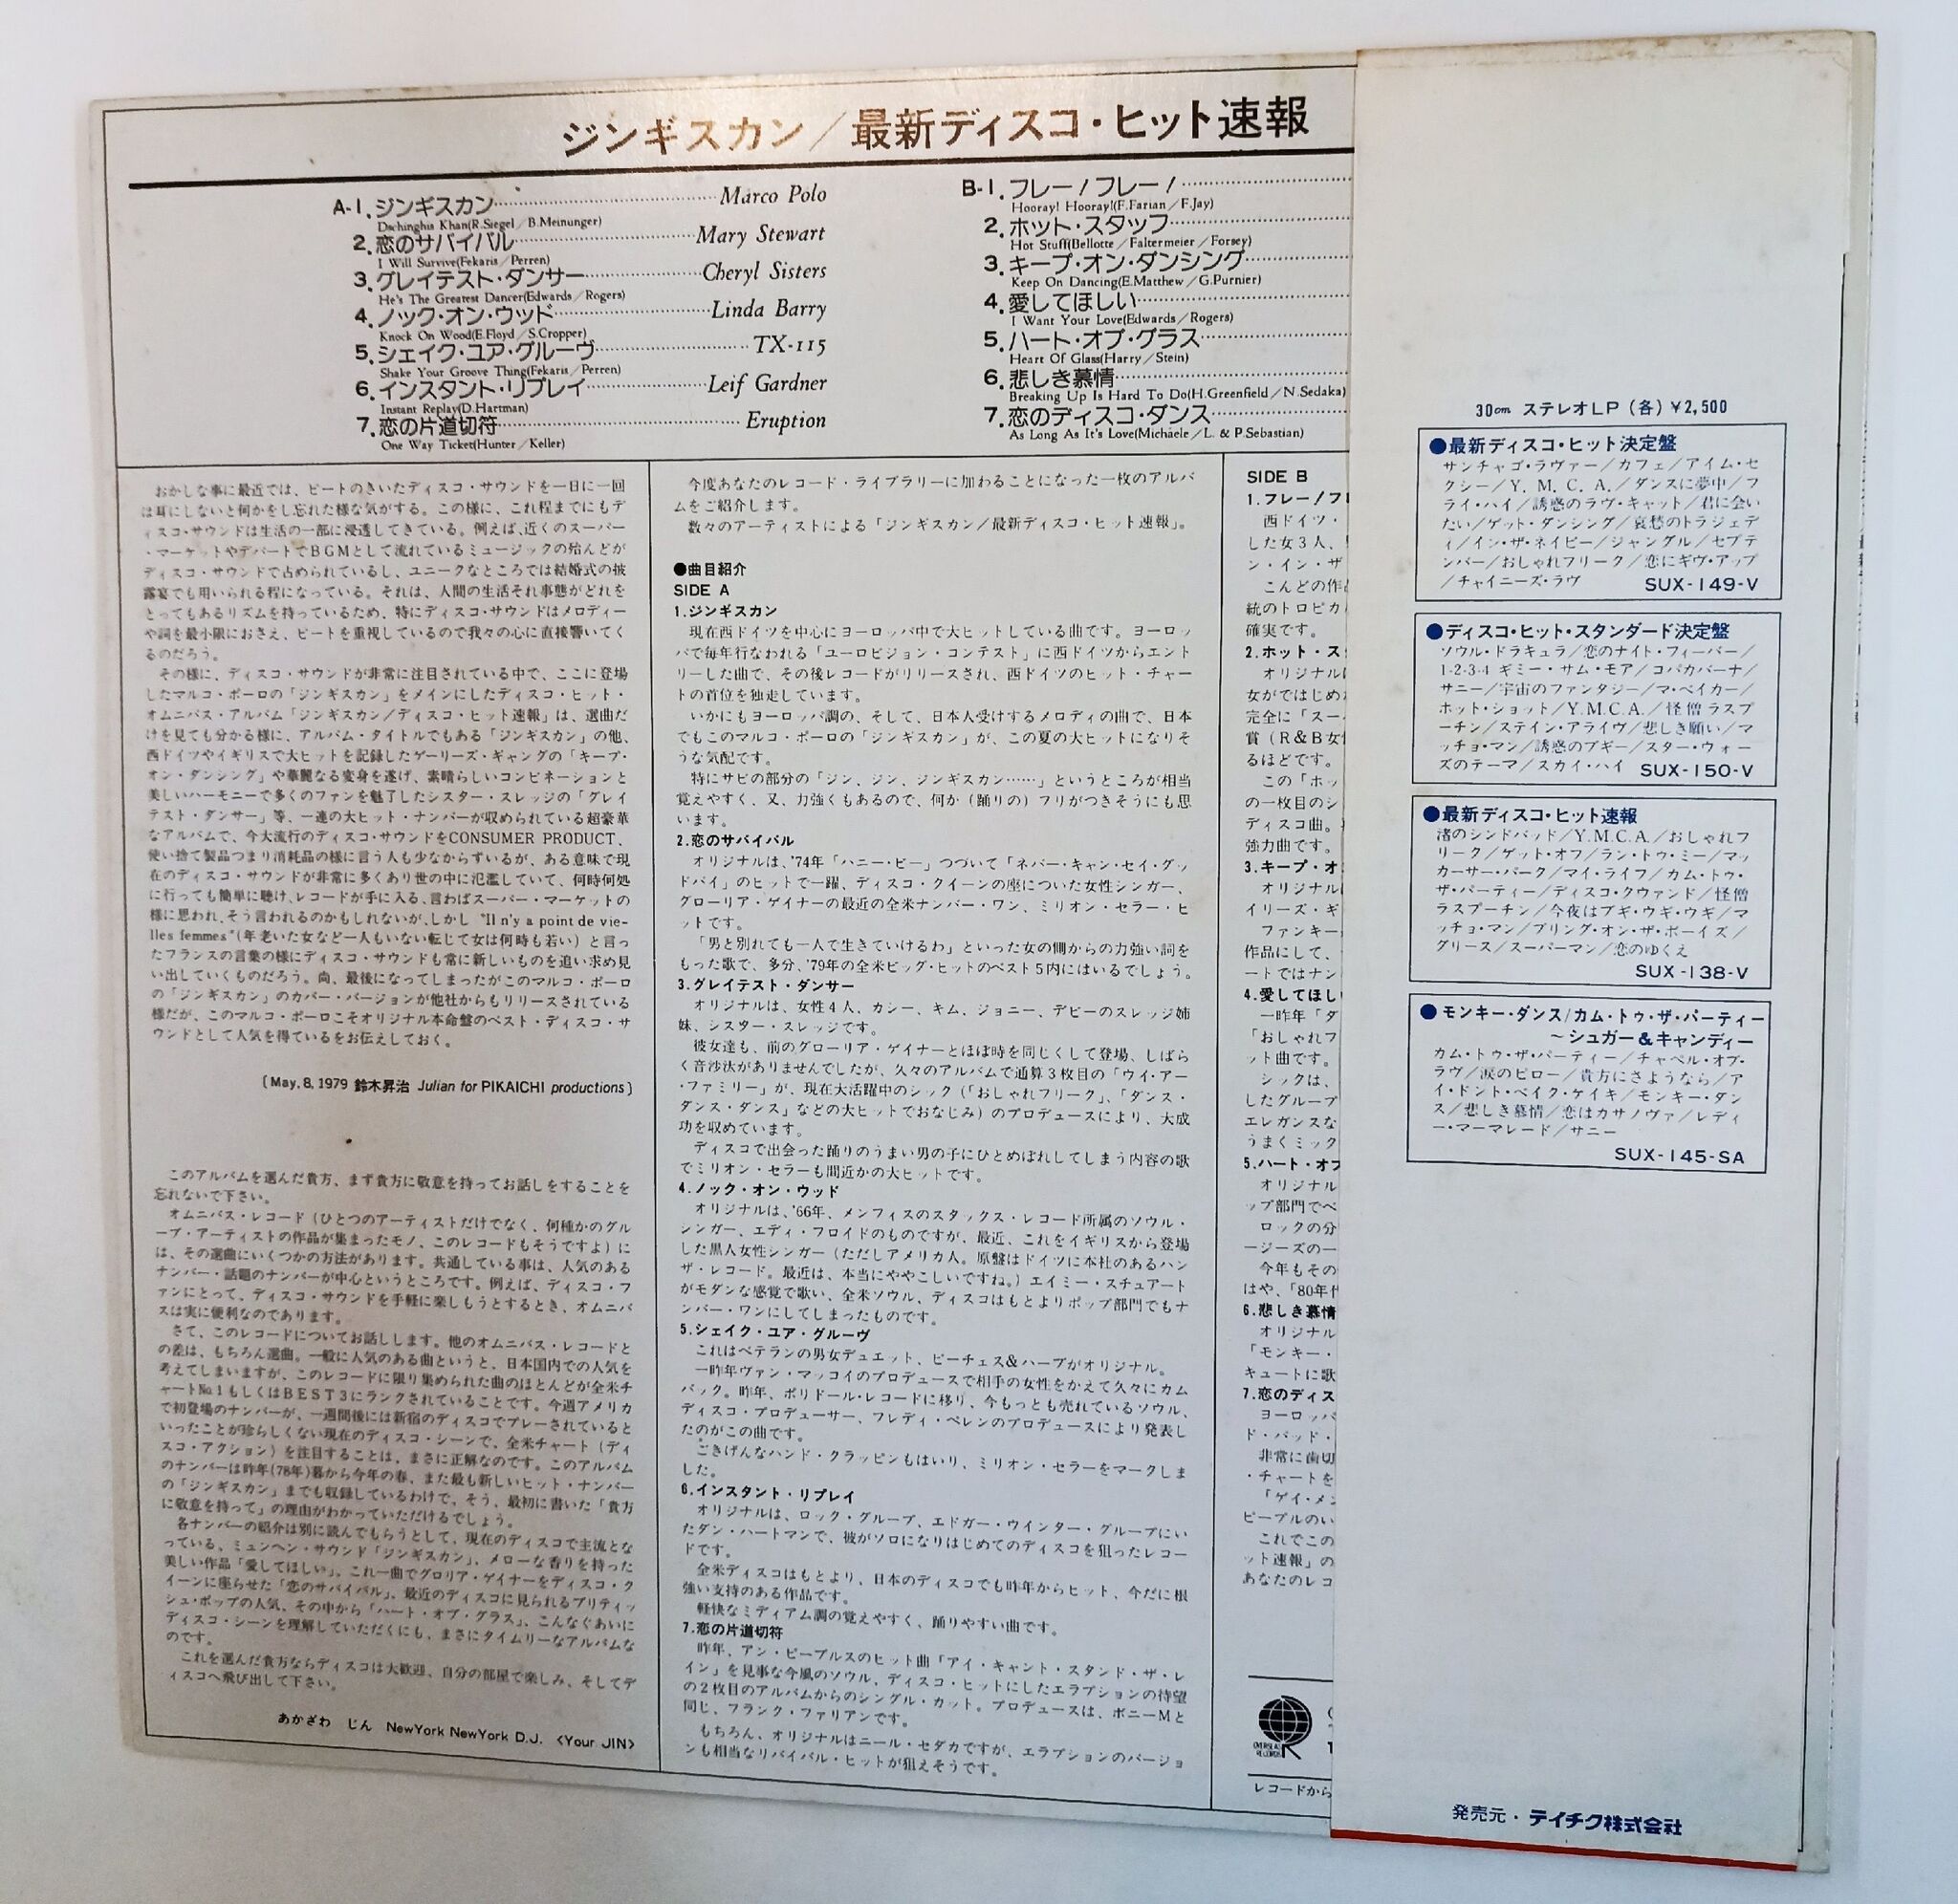 ジンギスカン／最新ディスコ・ヒット速報
A-1.ジンギスカン……Marco Polo
Dschinghis Khan(R.Siegel／B.Meinunger)
2.恋のサバイバル……Mary Stewart
I Will Survive(Fekaris／Perren)
3.グレイテスト・ダンサー……Cheryl Sisters
He's The Greatest Dancer(Edwards／Rogers)
4.ノック・オン・ウッド……Linda Barry
Knock On Wood(E.Floyd／S.Cropper)
5.シェイク・ユア・グルーヴ……TX-115
Shake Your Groove Thing(Fekaris／Perren)
6.インスタント・リプレイ……Leif Gardner
Instant Replay(D.Hartman)
7.恋の片道切符……Eruption
One Way Ticket(Hunter／Keller)
B-1.フレー！フレー！……
Hooray! Hooray!(F.Farian／F.Jay)
2.ホット・スタッフ……
Hot Stuff(Bellotte／Faltermeier／Forsey)
3.キープ・オン・ダンシング……
Keep On Dancing(E.Matthew／G.Purnier)
4.愛してほしい……
I Want Your Love(Edwards／Rogers)
5.ハート・オブ・グラス……
Heart Of Glass(Harry／Stein)
6.悲しき慕情……
Breaking Up Is Hard To Do(H.Greenfield／N.Sedaka)
7.恋のディスコ・ダンス……
As Long As It's Love(Michaele／L. & P.Sebastian)
おかしな事に最近では、ビートのきいたディスコ・サウンドを一日に一回
は耳にしないと何かをし忘れた様な気がする。この様に、これ程までにもデ
ィスコ・サウンドは生活の一部に浸透してきている。例えば、近くのスーパー
・マーケットやデパートでBGMとして流れているミュージックの殆んどが
ディスコ・サウンドで占められているし、ユニークなところでは結婚式の披
露宴でも用いられる程になっている。それは、人間の生活それ事態がどれを
とってもあるリズムを持っているため、特にディスコ・サウンドはメロディー
や詞を最小限におさえ、ビートを重視しているので我々の心に直接響いてく
るのだろう。
その様に、ディスコ・サウンドが非常に注目されている中で、ここに登場
したマルコ・ポーロの「ジンギスカン」をメインにしたディスコ・ヒット・
オムニバス・アルバム「ジンギスカン/ディスコ・ヒット速報」は、選曲だ
けを見ても分かる様に、アルバム・タイトルでもある「ジンギスカン」の他、
西ドイツやイギリスで大ヒットを記録したゲーリーズ・ギャングの「キープ・
オン・ダンシング」や華麗なる変身を遂げ、素晴らしいコンビネーションと
美しいハーモニーで多くのファンを魅了したシスター・スレッジの「グレイ
テスト・ダンサー」等、一連の大ヒット・ナンバーが収められている超豪華
なアルバムで、今大流行のディスコ・サウンドをCONSUMER PRODUCT、
使い捨て製品つまり消耗品の様に言う人も少なからずいるが、ある意味で現
在のディスコ・サウンドが非常に多くあり世の中に氾濫していて、何時何処
に行っても簡単に聴け、レコードが手に入る、言わばスーパー・マーケットの
様に思われ、そう言われるのかもしれないが、しかし "Il n'y a point de vie-
lles femmes"(年老いた女など一人もいない転じて女は何時も若い) と言っ
たフランスの言葉の様にディスコ・サウンドも常に新しいものを追い求め見
い出していくものだろう。尚、最後になってしまったがこのマルコ・ポーロ
の「ジンギスカン」のカバー・バージョンが他社からもリリースされている
様だが、このマルコ・ポーロこそオリジナル本命盤のベスト・ディスコ・サ
ウンドとして人気を得ているをお伝えしておく。
(May, 8, 1979 鈴木昇治 Julian for PIKAICHI productions)
このアルバムを選んだ貴方、まず貴方に敬意を持ってお話しをすることを
忘れないで下さい。
オムニバス・レコード (ひとつのアーティストだけでなく、何種かのグル
ープ・アーティストの作品が集まったモノ、このレコードもそうですよ) に
は、その選曲にいくつかの方法があります。共通している事は、人気のある
ナンバー・話題のナンバーが中心というところです。例えば、ディスコ・フ
ァンにとって、ディスコ・サウンドを手軽に楽しもうとするとき、オムニバ
スは実に便利なのであります。
さて、このレコードについてお話しします。他のオムニバス・レコードと
の差は、もちろん選曲。一般に人気のある曲というと、日本国内での人気を
考えてしまいますが、このレコードに限り集められた曲のほとんどが全米チ
ャート№1もしくはBEST3にランクされていることです。今週アメリカ
で初登場のナンバーが、一週間後には新宿のディスコでプレーされていると
いったことが珍らしくない現在のディスコ・シーンで、全米チャート (ディ
スコ・アクション) を注目することは、まさに正解なのです。このアルバム
のナンバーは昨年(78年)暮から今年の春、また最も新しいヒット・ナンバー
の「ジンギスカン」までも収録しているわけで。そう、最初に書いた「貴方
に敬意を持って」の理由がわかっていただけるでしょう。
各ナンバーの紹介は別に読んでもらうとして、現在のディスコで主流とな
っている、ミュンヘン・サウンド「ジンギスカン」、メローな香りを持った
美しい作品「愛してほしい」、これ一曲でグロリア・ゲイナーをディスコ・ク
イーンに座らせた「恋のサバイバル」、最近のディスコに見られるブリティッ
シュ・ポップの人気、その中から「ハート・オブ・グラス」、こんなぐあいに
ディスコ・シーンを理解していただくにも、まさにタイムリーなアルバムな
のです。
これを選んだ貴方ならディスコは大歓迎、自分の部屋で楽しみ、そしてデ
ィスコへ飛び出して下さい。
あかざわ じん NewYork NewYork D.J. 〈Your JIN〉
今度あなたのレコード・ライブラリーに加わることになった一枚のアルバ
ムをご紹介します。
数々のアーティストによる「ジンギスカン／最新ディスコ・ヒット速報」。
●曲目紹介
SIDE A
1.ジンギスカン
現在西ドイツを中心にヨーロッパ中で大ヒットしている曲です。ヨーロッ
パで毎年行なわれる「ユーロビジョン・コンテスト」に西ドイツからエント
リーした曲で、その後レコードがリリースされ、西ドイツのヒット・チャー
トの首位を独走しています。
いかにもヨーロッパ調の、そして、日本人受けするメロディの曲で、日本
でもこのマルコ・ポーロの「ジンギスカン」が、この夏の大ヒットになりそ
うな気配です。
特にサビの部分の「ジン、ジン、ジンギスカン……」というところが相当
覚えやすく、又、力強くもあるので、何か (踊りの) フリがつきそうにも思
います。
2.恋のサバイバル
オリジナルは、'74年「ハニー・ビー」つづいて「ネバー・キャン・セイ・グッ
ドバイ」のヒットで一躍、ディスコ・クイーンの座についた女性シンガー、
グローリア・ゲイナーの最近の全米ナンバー・ワン、ミリオン・セラー・ヒ
ットです。
「男と別れても一人で生きていけるわ」といった女の側からの力強い詞を
もった歌で、多分、'79年の全米ビッグ・ヒットのベスト5内にはいるでしょう。
3.グレイテスト・ダンサー
オリジナルは、女性4人、カシー、キム、ジョニー、デビーのスレッジ姉
妹、シスター・スレッジです。
彼女達も、前のグローリア・ゲイナーとほぼ時を同じくして登場、しばら
く音沙汰がありませんでしたが、久々のアルバムで通算3枚目の「ウイ・アー
・ファミリー」が、現在大活躍中のシック (「おしゃれフリーク」、「ダンス・
ダンス・ダンス」などの大ヒットでおなじみ) のプロデュースにより、大成
功を収めています。
ディスコで出会った踊りのうまい男の子にひとめぼれしてしまう内容の歌
でミリオン・セラーも間近かの大ヒットです。
4.ノック・オン・ウッド
オリジナルは、'66年、メンフィスのスタックス・レコード所属のソウル・
シンガー、エディ・フロイドのものですが、最近、これをイギリスから登場
した黒人女性シンガー (ただしアメリカ人。原盤はドイツに本社のあるハン
ザ・レコード。最近は、本当にややこしいですね。) エイミー・スチュアート
がモダンな感覚で歌い、全米ソウル、ディスコはもとよりポップ部門でもナ
ンバー・ワンにしてしまったものです。
5.シェイク・ユア・グルーヴ
これはベテランの男女デュエット、ピーチェス&ハーブがオリジナル。
一昨年ヴァン・マッコイのプロデュースで相手の女性をかえて久々にカム
バック。昨年、ポリドール・レコードに移り、今もっとも売れているソウル、
ディスコ・プロデューサー、フレディ・ペレンのプロデュースにより発表し
たのがこの曲です。
ごきげんなハンド・クラッピンもはいり、ミリオン・セラーをマークしま
した。
6.インスタント・リプレイ
オリジナルは、ロック・グループ、エドガー・ウインター・グループにい
たダン・ハートマンで、彼がソロになりはじめてのディスコを狙ったレコー
ドです。
全米ディスコはもとより、日本のディスコでも昨年からヒット、今だに根
強い支持のある作品です。
軽快なミディアム調の覚えやすく、踊りやすい曲です。
7.恋の片道切符
昨年、アン・ピーブルスのヒット曲「アイ・キャント・スタンド・ザ・レ
イン」を見事な今風のソウル、ディスコ・ヒットにしたエラプションの待望
の2枚目のアルバムからのシングル・カット。プロデュースは、ボニーMと
同じ、フランク・ファリアンです。
もちろん、オリジナルはニール・セダカですが、エラプションのバージョ
ンも相当なリバイバル・ヒットが狙えそうです。
SIDE B
1.フレー！フ
西ドイツ・
した女3人、
ン・イン・ザ
こんどの作
統のトロピカ
確実です。
2.ホット・ス
オリジナル
女がではじめ
完全に「スー
賞 (R&B女
るほどです。
この「ホッ
の一枚目のシ
ディスコ曲。
強力曲です。
3.キープ・オ
オリジナル
イリーズ・ギ
ファンキー
作品にして、
ートではナン
4.愛してほし
一昨年「ダ
「おしゃれフ
ット曲です。
シックは、
したグループ
エレガンスな
うまくミック
5.ハート・オブ
オリジナル
ップ部門でベ
ロックの分
ージーズの一
今年もその
はや、「80年代
6.悲しき慕情
オリジナル
「モンキー・
キュートに歌
7.恋のディス
ヨーロッパ
ド・バッド・
非常に歯切
・チャートを
「ゲイ・メン
ピープルのい
これでこの
ット速報」の
あなたのレコ
OVERSEAS
RECORDS
レコードから
30cm ステレオLP (各) ¥2,500
●最新ディスコ・ヒット決定盤
サンチャゴ・ラヴァー／カフェ／アイム・セ
クシー／Y. M. C. A.／ダンスに夢中／フ
ライ・ハイ／誘惑のラヴ・キャット／君に会い
たい／ゲット・ダンシング／哀愁のトラジェデ
ィ／イン・ザ・ネイビー／ジャングル／セプテ
ンバー／おしゃれフリーク／恋にギヴ・アップ
／チャイニーズ・ラヴ
SUX-149-V
●ディスコ・ヒット・スタンダード決定盤
ソウル・ドラキュラ／恋のナイト・フィーバー／
1-2-3-4 ギミー・サム・モア／コパカバーナ／
サニー／宇宙のファンタジー／マ・ベイカー／
ホット・ショット／Y.M.C.A.／怪僧ラスプ
ーチン／ステイン・アライヴ／悲しき願い／マ
ッチョ・マン／誘惑のブギー／スター・ウォー
ズのテーマ／スカイ・ハイ SUX-150-V
●最新ディスコ・ヒット速報
渚のシンドバッド／Y.M.C.A.／おしゃれフ
リーク／ゲット・オフ／ラン・トゥ・ミー／マッ
カーサー・パーク／マイ・ライフ／カム・トゥ・
ザ・パーティー／ディスコ・クヮァンド／怪僧
ラスプーチン／今夜はブギ・ウギ・ウギ／マ
ッチョ・マン／ブリング・オン・ザ・ボーイズ／
グリース／スーパーマン／恋のゆくえ
SUX-138-V
●モンキー・ダンス/カム・トゥ・ザ・パーティー
～シュガー&キャンディー
カム・トゥ・ザ・パーティー／チャペル・オブ・
ラヴ／涙のピロー／貴方にさようなら／ア
イ・ドント・ベイク・ケイキ／モンキー・ダン
ス／悲しき慕情／恋はカサノヴァ／レディ
ー・マーマレード／サニー
SUX-145-SA
発売元・テイチク株式会社